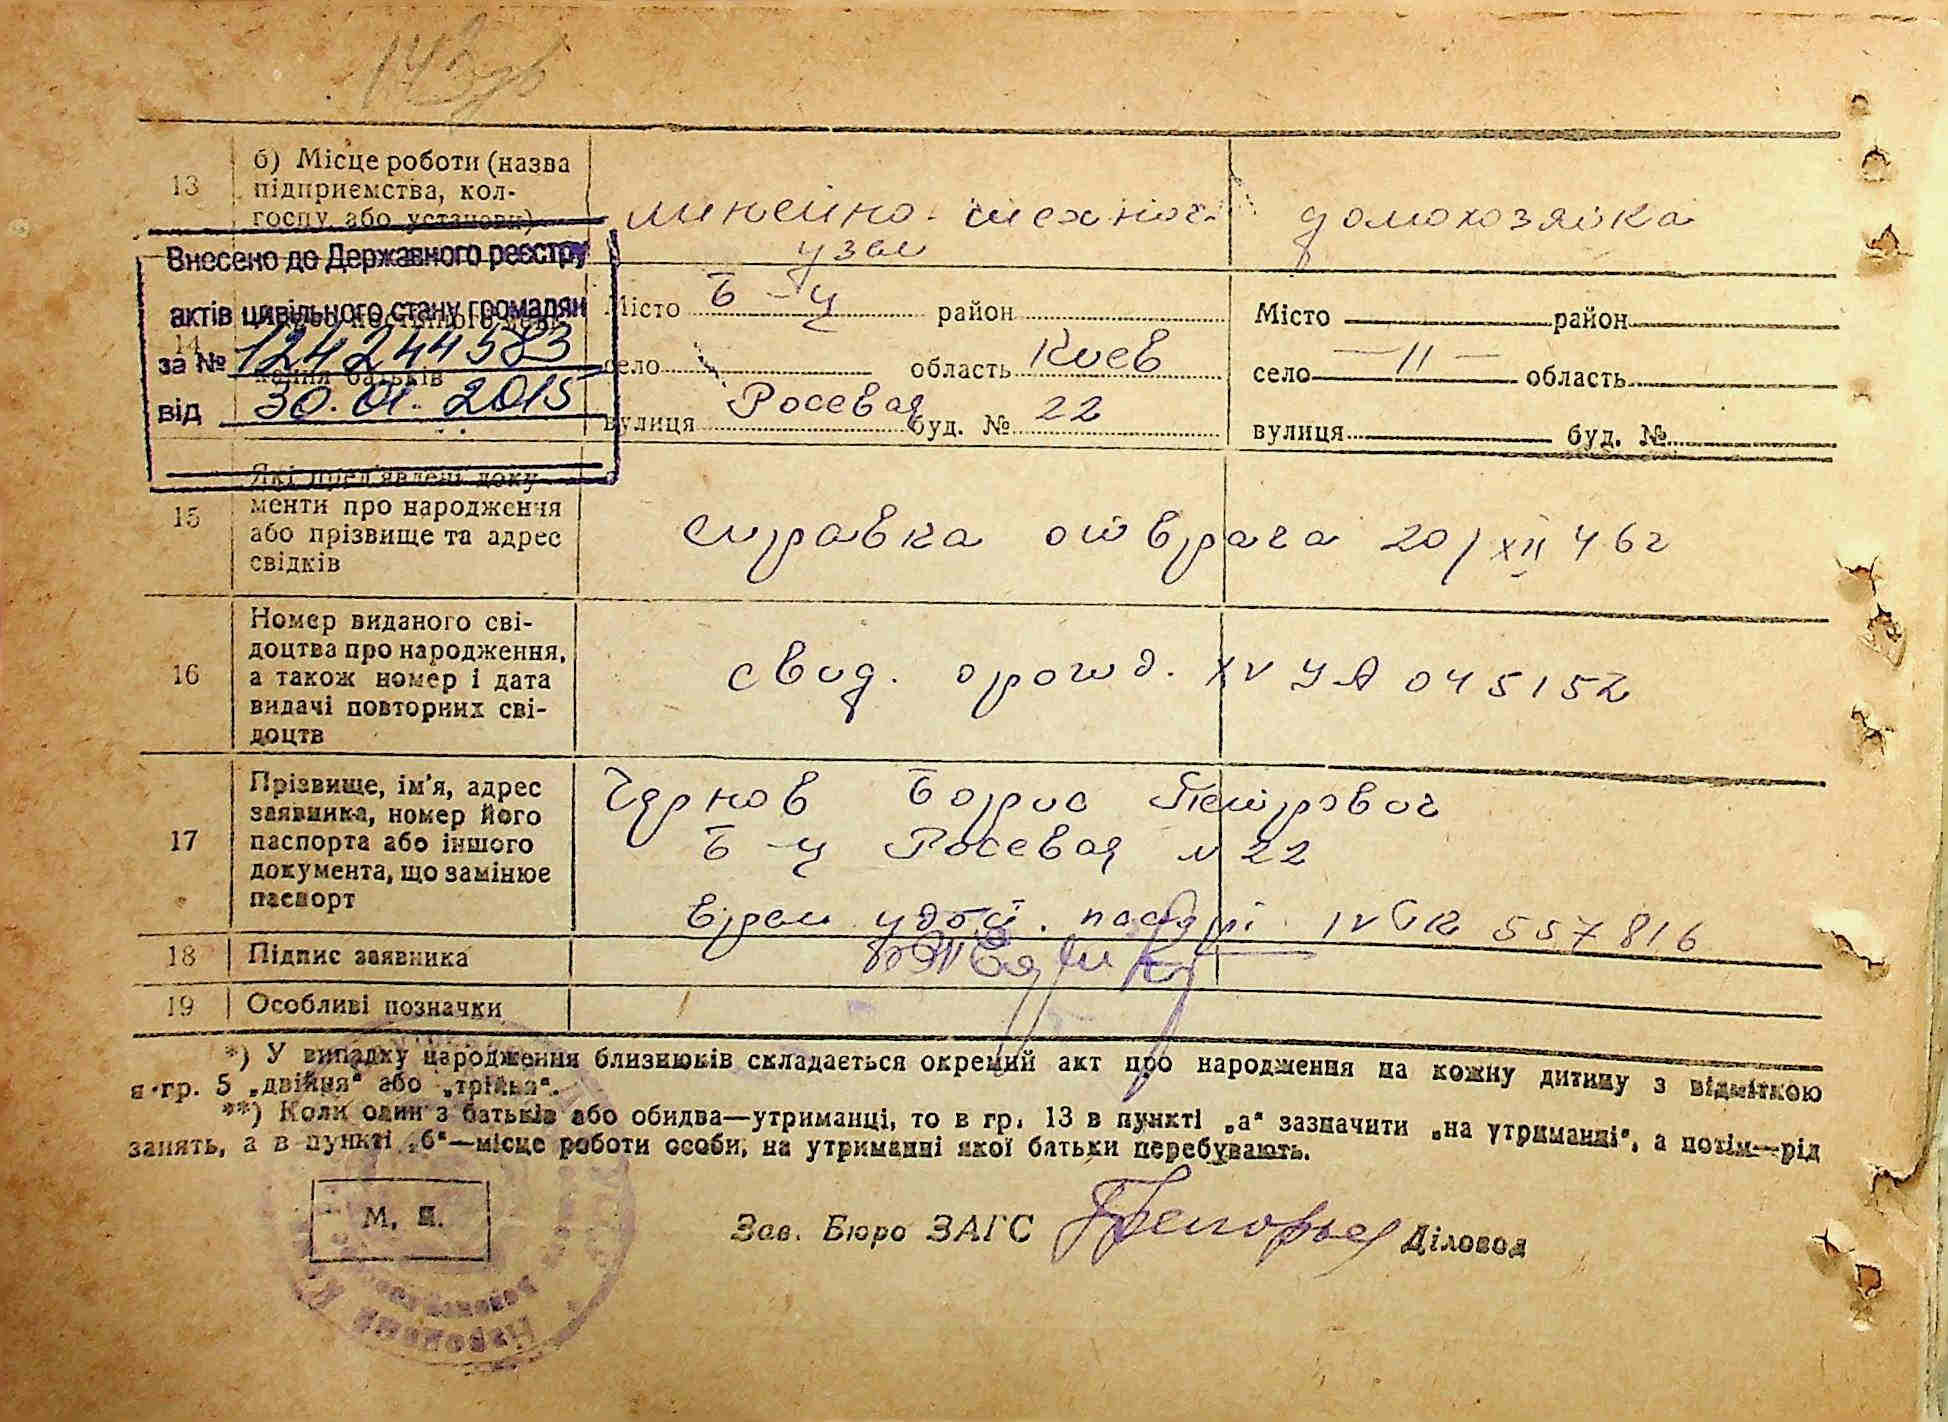 13
б) Місце роботи (назва
підприємства, кол-
госпу або установи)
линейно-технич.
узел
домохозяйка
Внесено до Державного реєстру
актів цивільного стану громадян
за № 124244583
від 30.01.2015
14
кання батьків
Місто Б-Ц район
село область Киев
вулиця Росевая буд. № 22
Місто район
село — 11 — область
вулиця буд. №
15
Які пред'явлені доку-
менти про народження
або прізвище та адрес
свідків
справка от врача 20/XII 46г
16
Номер виданого сві-
доцтва про народження,
а також номер і дата
видачі повторних сві-
доцтв
свид. о рожд. XV УА 045152
17
Прізвище, ім'я, адрес
заявника, номер його
паспорта або іншого
документа, що замінює
паспорт
Чернов Борис Петрович
Б-Ц Росевая № 22
врем удост. 557816
18
Підпис заявника
19
Особливі позначки
*) У випадку народження близнюків складається окремий акт про народження на кожну дитину з відміткою
в гр. 5 „двійня“ або „трійня“.
**) Коли один з батьків або обидва—утриманці, то в гр. 13 в пункті „а“ зазначити „на утриманні“, а потім—рід
занять, а в пункті „б“—місце роботи особи, на утриманні якої батьки перебувають.
М. П.
Зав. Бюро ЗАГС
Діловод